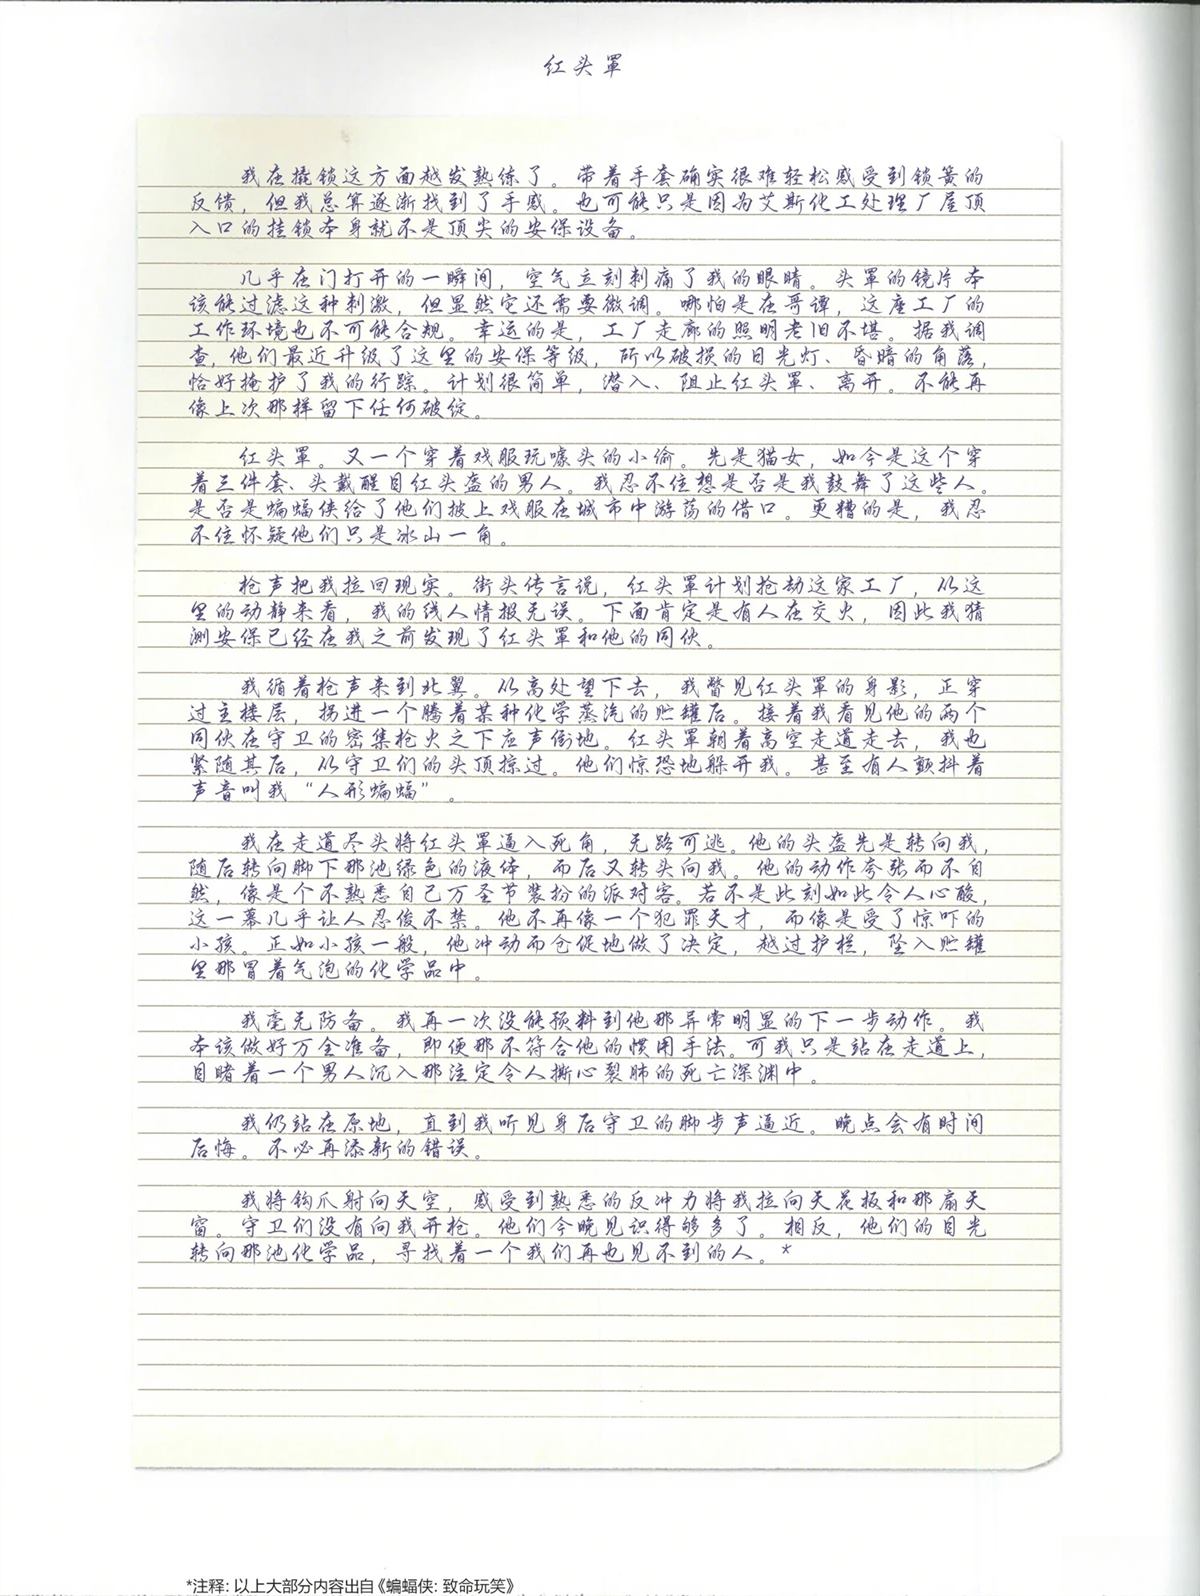 红头罩
我在撬锁这方面越发熟练了。带着手套确实很难轻松感受到锁簧的
反馈，但我总算逐渐找到了手感。也可能只是因为艾斯化工处理厂屋顶
入口的挂锁本身就不是顶尖的安保设备。
几乎在门打开的一瞬间，空气立刻刺痛了我的眼睛。头罩的镜片本
该能过滤这种刺激，但显然它还需要微调。哪怕是在哥谭，这座工厂的
工作环境也不可能合规。幸运的是，工厂走廊的照明老旧不堪。据我调
查，他们最近升级了这里的安保等级，所以破损的日光灯、昏暗的角落，
恰好掩护了我的行踪。计划很简单，潜入、阻止红头罩、离开。不能再
像上次那样留下任何破绽。
红头罩。又一个穿着戏服玩噱头的小偷。先是猫女，如今是这个穿
着三件套、头戴醒目红头盔的男人。我忍不住想是否是我鼓舞了这些人。
是否是蝙蝠侠给了他们披上戏服在城市中游荡的借口。更糟的是，我忍
不住怀疑他们只是冰山一角。
枪声把我拉回现实。街头传言说，红头罩计划抢劫这家工厂，从这
里的动静来看，我的线人情报无误。下面肯定是有人在交火，因此我猜
测安保已经在我之前发现了红头罩和他的同伙。
我循着枪声来到北翼。从高处望下去，我瞥见红头罩的身影，正穿
过主楼层，拐进一个腾着某种化学蒸汽的贮罐后。接着我看见他的两个
同伙在守卫的密集枪火之下应声倒地。红头罩朝着高空走道走去，我也
紧随其后，从守卫们的头顶掠过。他们惊恐地躲开我。甚至有人颤抖着
声音叫我“人形蝙蝠”。
我在走道尽头将红头罩逼入死角，无路可逃。他的头盔先是转向我，
随后转向脚下那池绿色的液体，而后又转头向我。他的动作夸张而不自
然，像是个不熟悉自己万圣节装扮的派对客。若不是此刻如此令人心酸，
这一幕几乎让人忍俊不禁。他不再像一个犯罪天才，而像是受了惊吓的
小孩。正如小孩一般，他冲动而仓促地做了决定，越过护栏，坠入贮罐
里那冒着气泡的化学品中。
我毫无防备。我再一次没能预料到他那异常明显的下一步动作。我
本该做好万全准备，即便那不符合他的惯用手法。可我只是站在走道上，
目睹着一个男人沉入那注定令人撕心裂肺的死亡深渊中。
我仍站在原地，直到我听见身后守卫的脚步声逼近。晚点会有时间
后悔。不必再添新的错误。
我将钩爪射向天空，感受到熟悉的反冲力将我拉向天花板和那扇天
窗。守卫们没有向我开枪。他们今晚见识得够多了。相反，他们的目光
转向那池化学品，寻找着一个我们再也见不到的人。*
*注释：以上大部分内容出自《蝙蝠侠：致命玩笑》